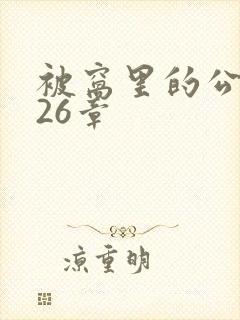 被窝里的公
26章
凉重明